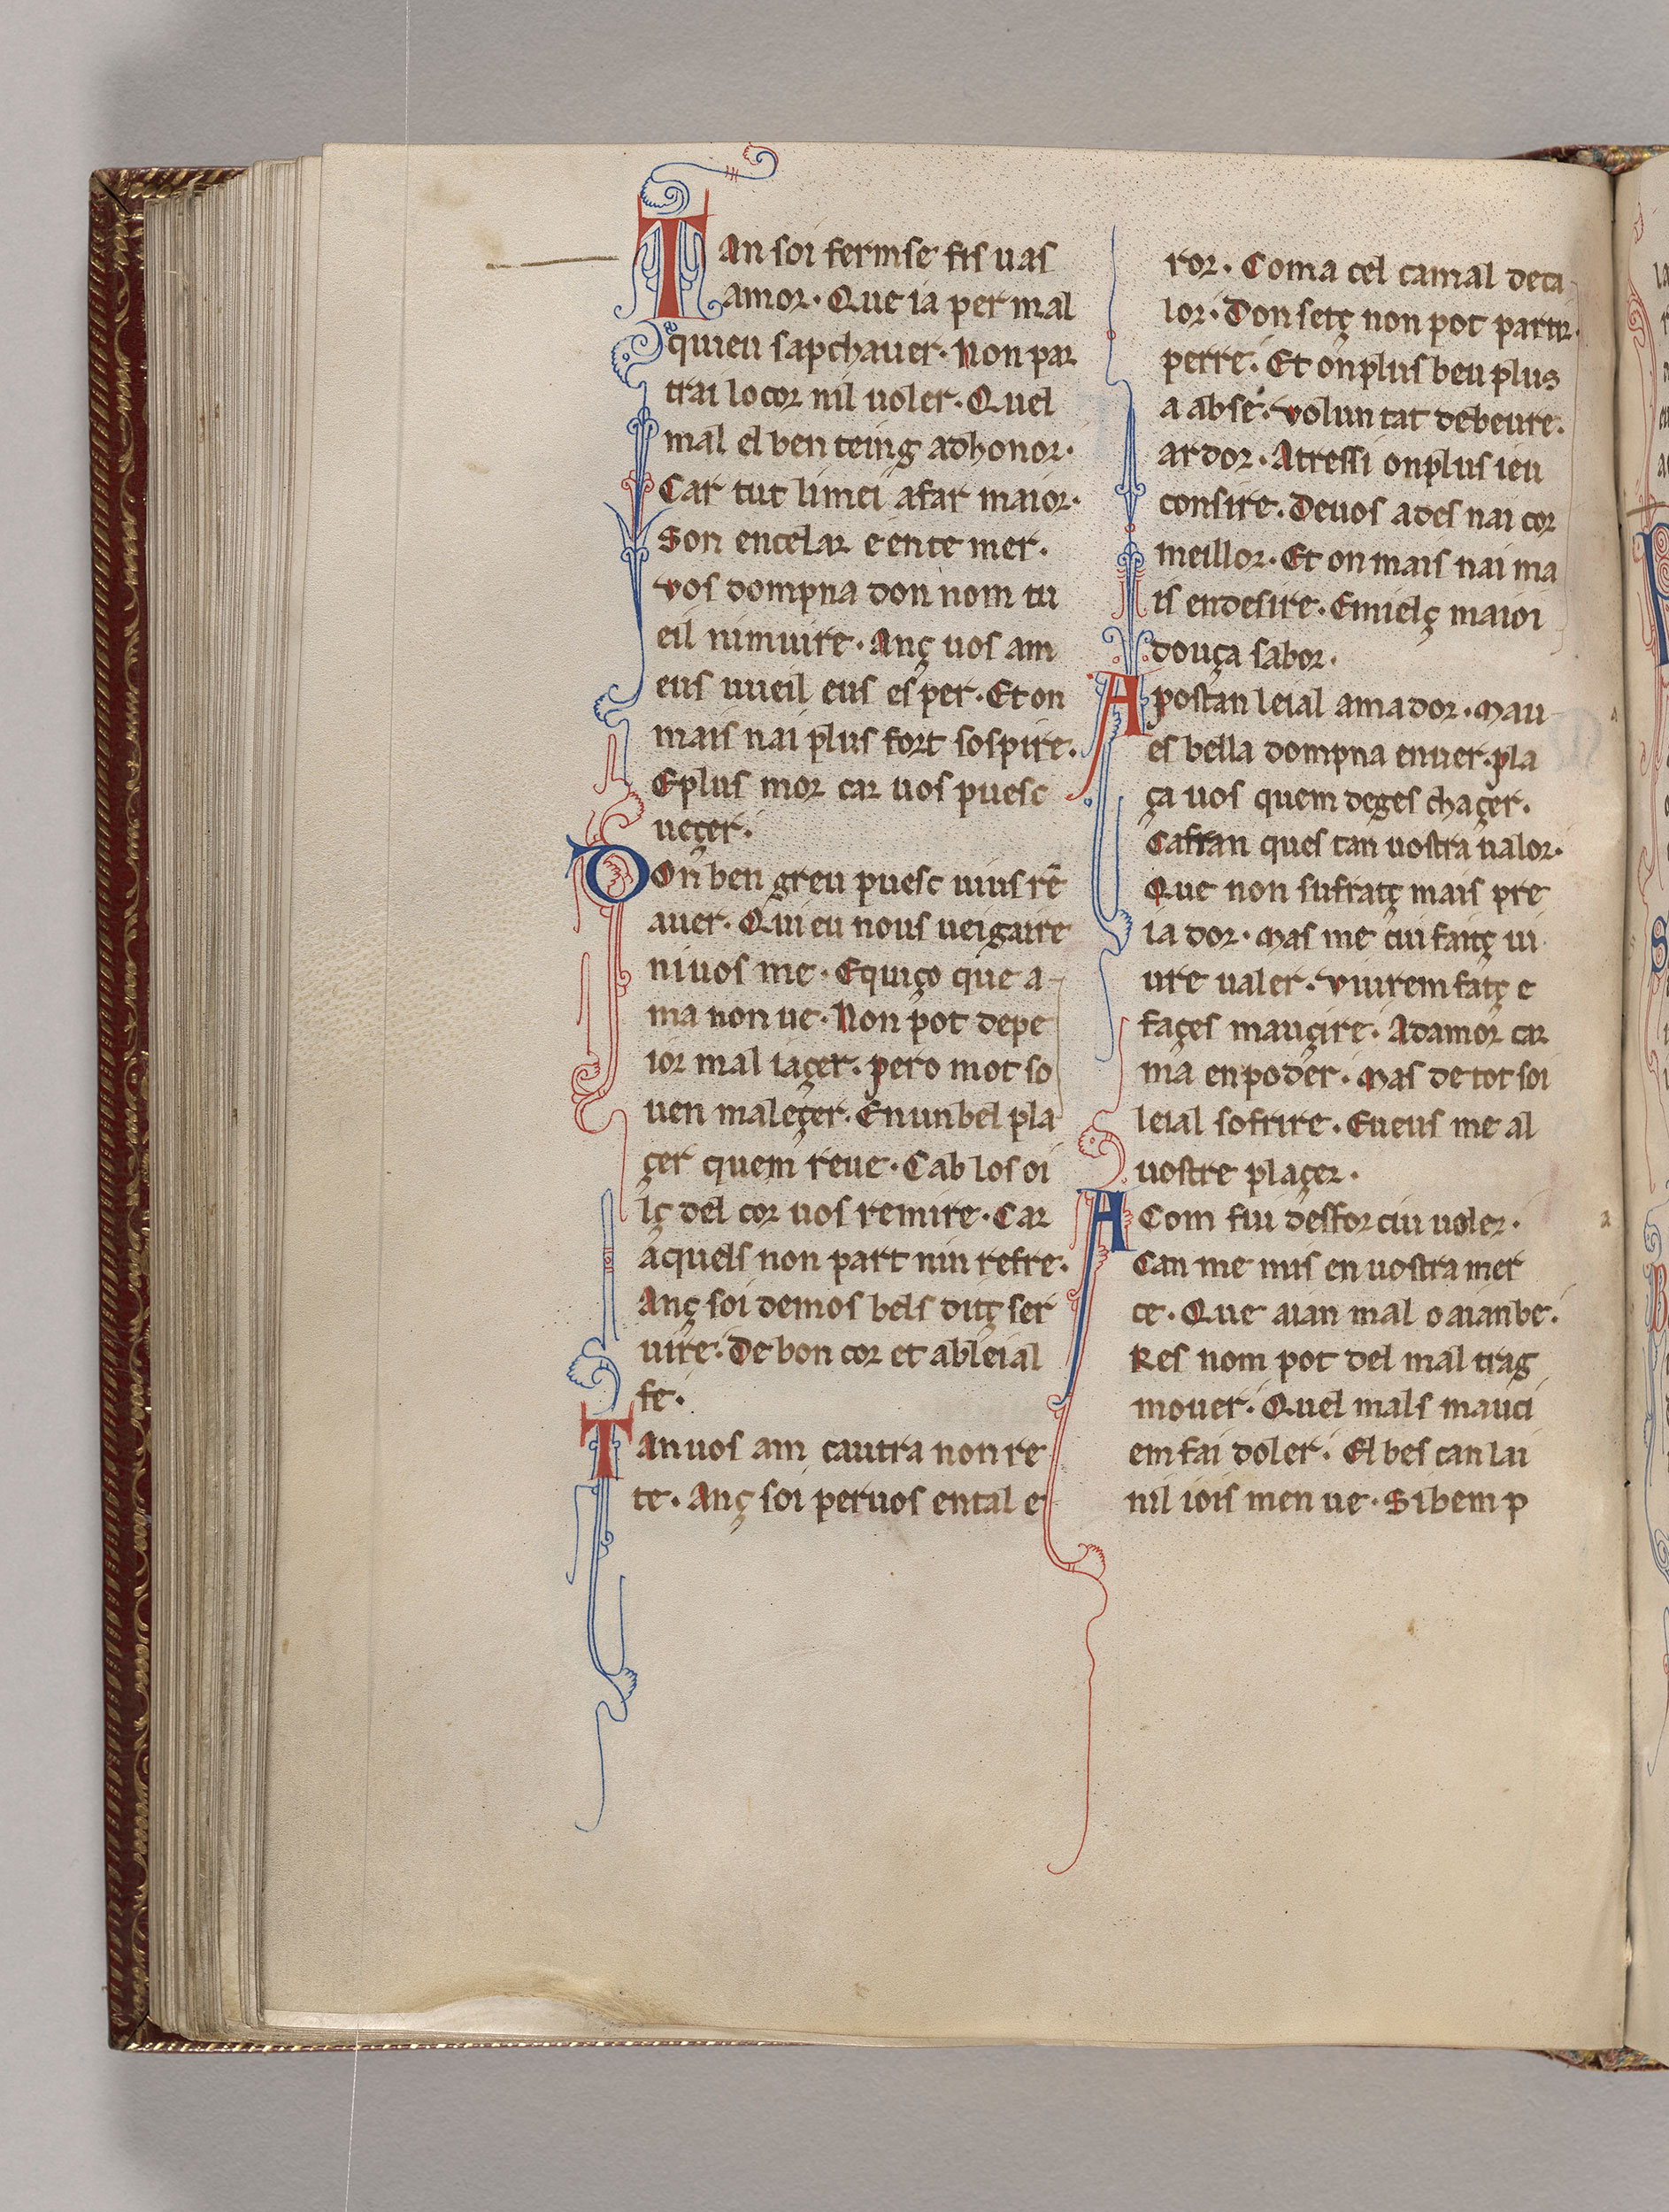 Tan soi ferms e fis uas
amor. Que ia per mal
quieu sapchauer. Non par
trai lo cor nil uoler. Quel
mal el ben teing ad honor.
Car tut li mei afar maior.
Son encelar e en te mer.
Vos dompna don nom tu
eil ni muire. Anç uos am
eus uueil eus es per. Et on
mais nai plus fort sospire.
E plus mor car uos puesc
ueçer.
Don ben greu puesc uius rē
auer. Qui eu nous ueigaire
ni uos me. E quiço que a
ma non ue. Non pot depe
ior mal iaçer. pero mot so
uen maleçer. En un bel pla
çer quem reue. Cab los oi
lç del cor uos remire. Car
aquels non part nin refre.
Anç soi demos bels ditç ser
uire. De bon cor et ableial
fe.
Tan uos am cautra non re
te. Anç soi peruos ental e
ror. Coma cel camal deca
lor. Don setç non pot partir.
perre. Et on plus beu plus
a abse. Voluntat debeure.
ardor. Atressi on plus ieu
consire. Deuos ades nai cor
meillor. Et on mais nai ma
is endesire. E mielç maioi
douça sabor.
A pos tan leial amador. Mau
es bella dompna enuer. pla
ça uos quem deges chaçer.
Cafran ques tan uostra ualor.
Que non sufratç mais pre
ia dor. Mas me cui faitç ui
ure ualer. Viurem fatç e
façes mauçire. Adamor car
ma en poder. Mas de tot soi
leial sofrire. E ueus me al
uostre plaçer.
A Com fiu desfor ciu uoler.
Can me mis en uostra mer
ce. Que aian mal o aian be.
Res nom pot del mal trag
mouer. Quel mals mauci
em fai doler. El bes can lai
nil iois men ue. Si bem p